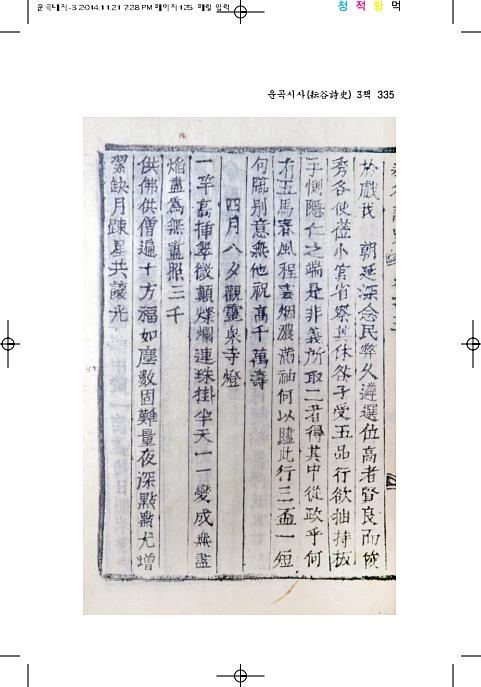 운곡대치-3 2014.11.21 7:28 PM 페이지125 매킬 입력
청 적 황 먹
운곡시사(耘谷詩史) 3책 335
於戲我 朝廷深念民弊久遴選位高者賢良而候
秀各使莅小官省察其休咎子受五品行欲抽持板
手惻隱仁之端是非義所取二者得其中從政乎何
有五馬春風程雲烟濃滿袖何以贐此行三盃一短
句臨別意無他祝高千萬壽
四月八夕觀靈泉寺燈
一竿高揷翠微顚燦爛連珠掛半天一一變成無盡
焰盡爲無盡照三千
供佛供僧遍十方福如塵數固難量夜深點點尤增
潔缺月踈星共讓光